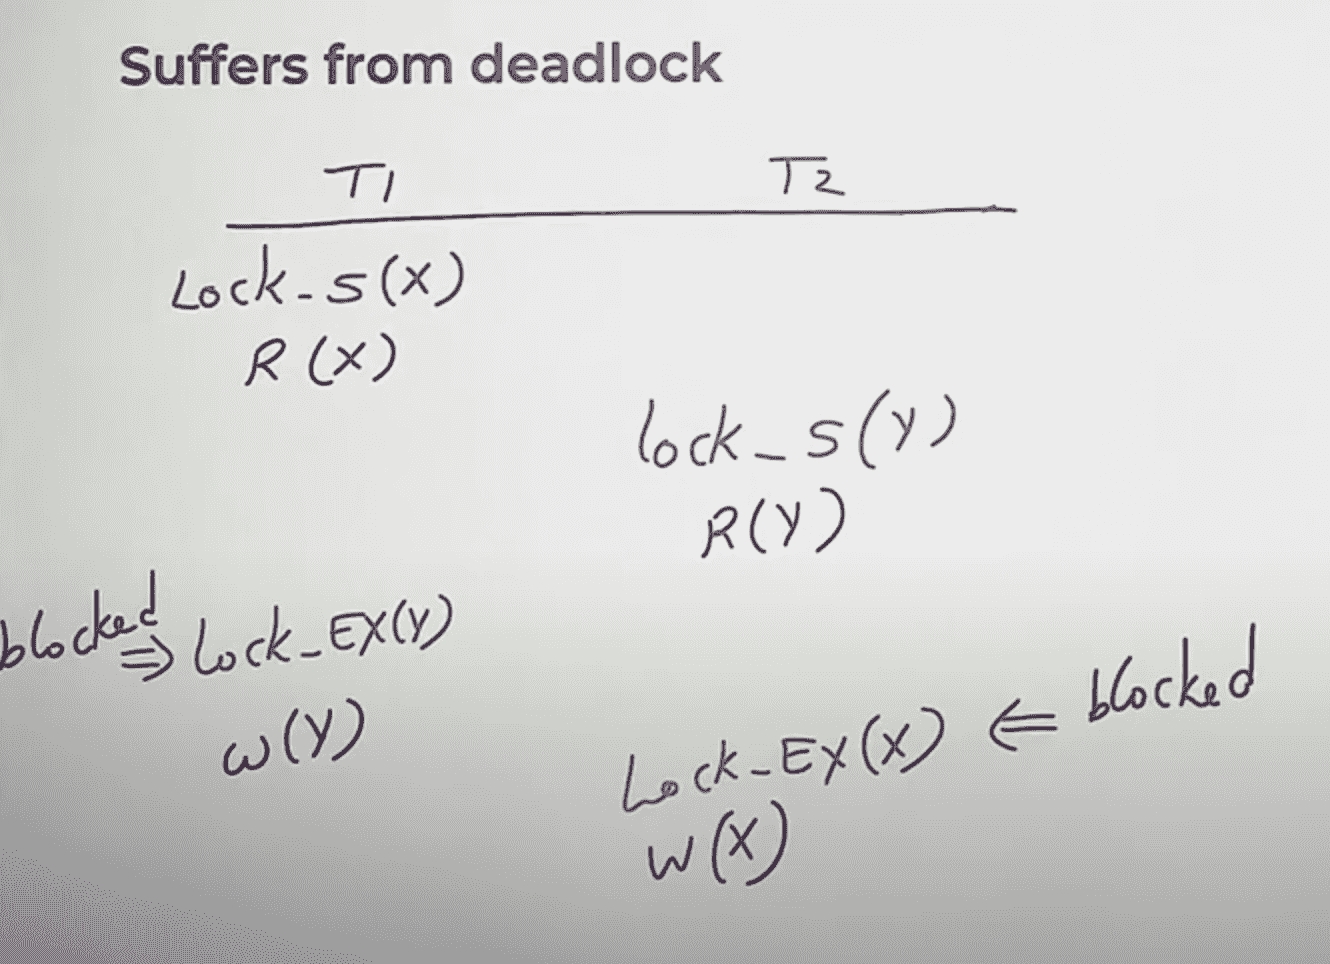 Suffers from deadlock
T1 T2
Lock_S(X)
R(X)
lock_S(Y)
R(Y)
blocked ⇒ Lock_EX(Y)
W(Y)
Lock_EX(X) ⇐ blocked
W(X)